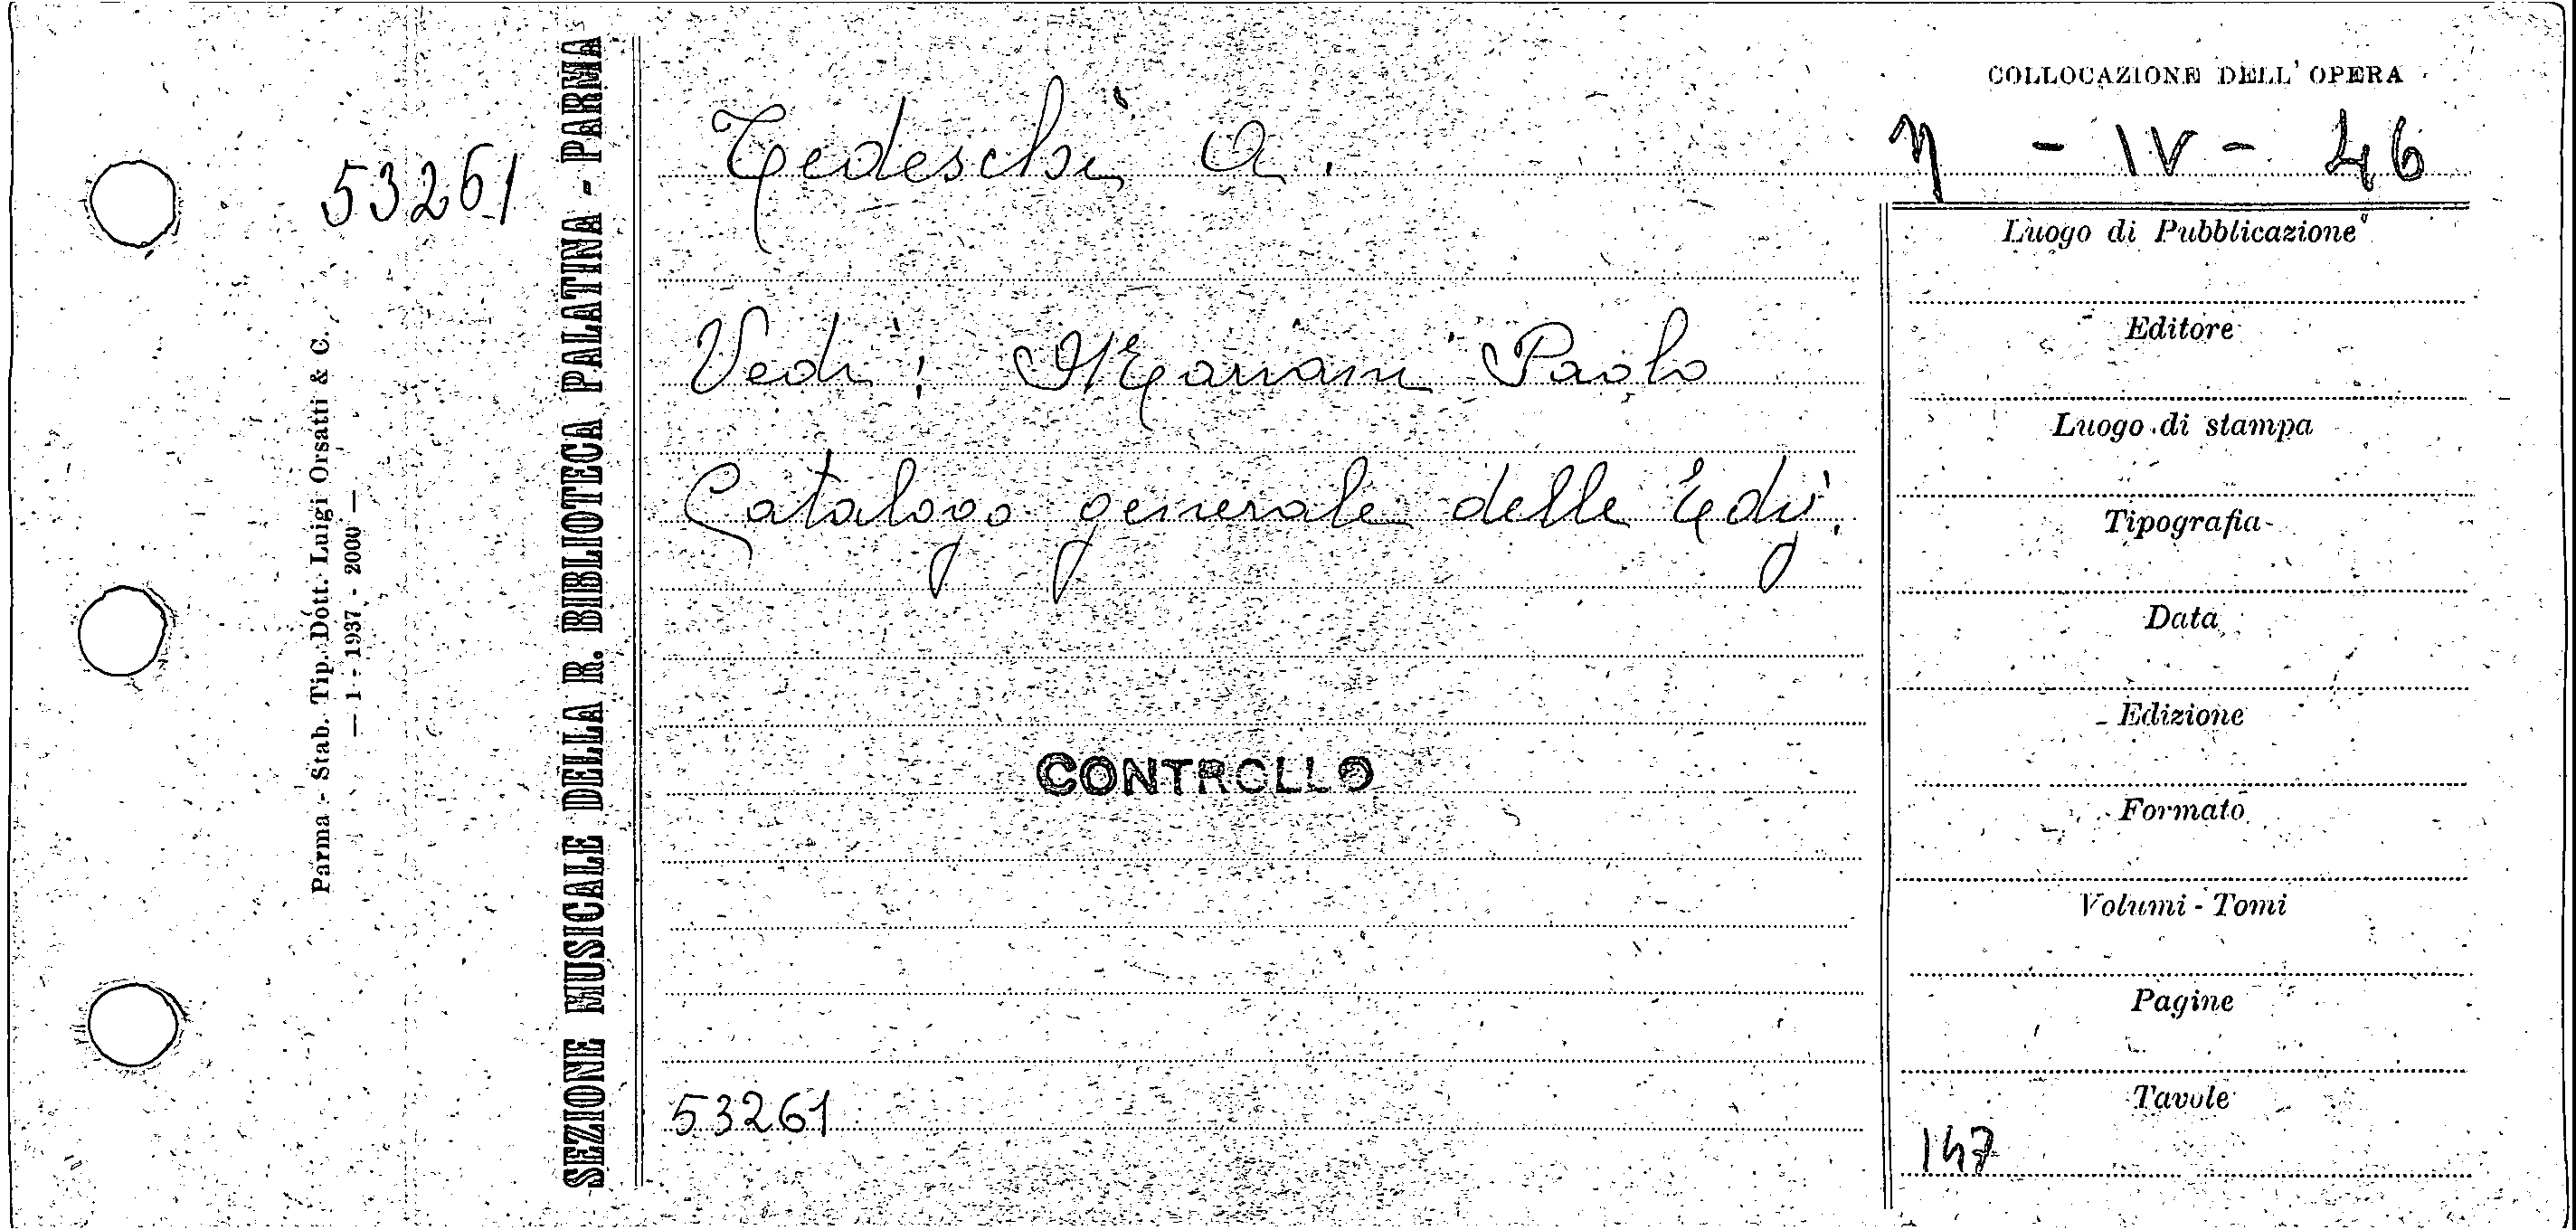 53261
Parma - Stab. Tip. Dott. Luigi Orsatti & C.
— 1 - 1937 - 2000 —
SEZIONE MUSICALE DELLA R. BIBLIOTECA PALATINA - PARMA
Tedeschi A.
Vedi: Mariani Paolo
Catalogo generale delle Ediz.
CONTROLLO
53261
COLLOCAZIONE DELL' OPERA
- IV - 46
Luogo di Pubblicazione
Editore
Luogo di stampa
Tipografia
Data
Edizione
Formato
Volumi - Tomi
Pagine
Tavole
147